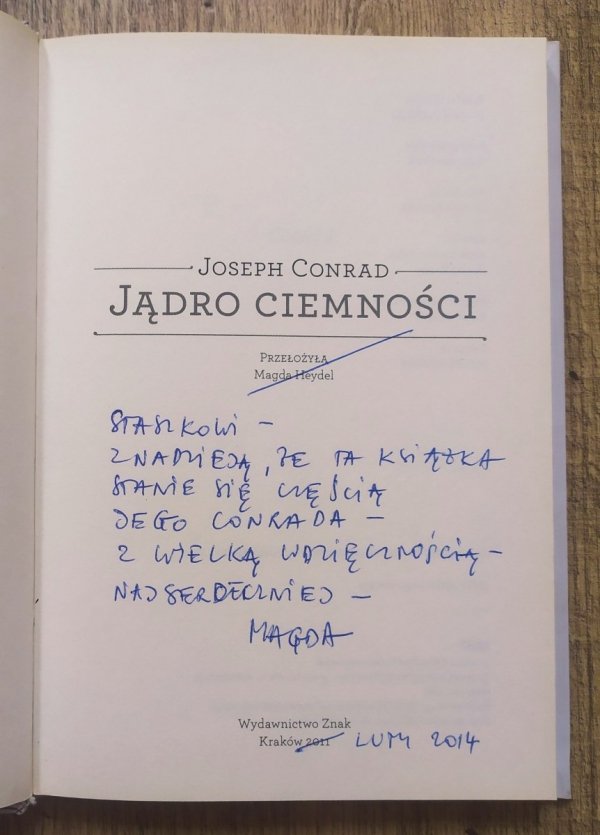 JOSEPH CONRAD
JĄDRO CIEMNOŚCI
PRZEŁOŻYŁA
Magda Heydel
STASZKOWI –
Z NADZIEJĄ, ŻE TA KSIĄŻKA
STANIE SIĘ CZĘŚCIĄ
JEGO CONRADA –
Z WIELKĄ WDZIĘCZNOŚCIĄ –
NAJSERDECZNIEJ –
MAGDA
Wydawnictwo Znak
Kraków 2011 LUTY 2014